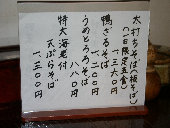 太打ちそば(板そば)
(一日限定五食)
一、三六〇円
鴨ざるそば
一、二〇〇円
うめとろそば
八八〇円
特大海老付
天ぷらそば
一、三〇〇円